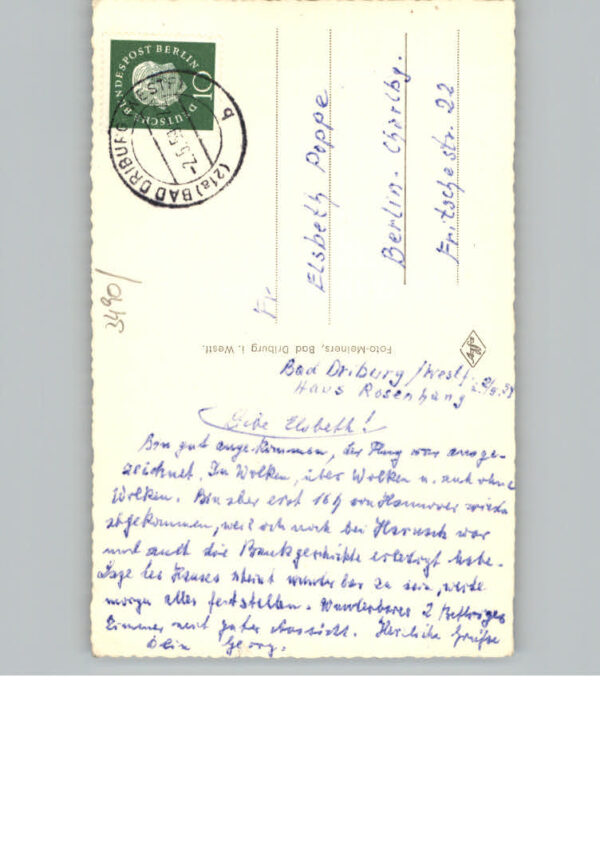 DEUTSCHE BUNDESPOST BERLIN
10
(21a) BAD DRIBURG
-2.5.59
b
Fr
Elsbeth Poppe
Berlin-Charlbg.
Fritschestr. 22
3490/
Foto-Meiners, Bad Driburg i. Westf.
Bad Driburg/Westf. 2/5.59
Haus Rosenhang
Liebe Elsbeth!
Bin gut angekommen, der Flug war ausge-
zeichnet. In Wolken, über Wolken u. auch ohne
Wolken. Bin aber erst 16h von Hannover wieder
abgekommen, weil ich noch bei war
und auch die Bankgeschichte erledigt habe.
Lage des Hauses scheint wunderbar zu sein, werde
morgen alles feststellen. Wunderbares 2 bettriges
Zimmer mit guter Aussicht. Herzliche Grüße
Dein Georg.